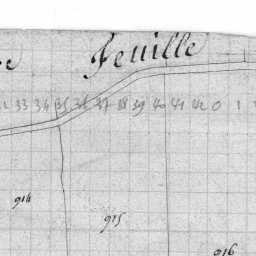 Feuille
33 34 35 36 37 38 39 40 41 42 0 1
914
915
916